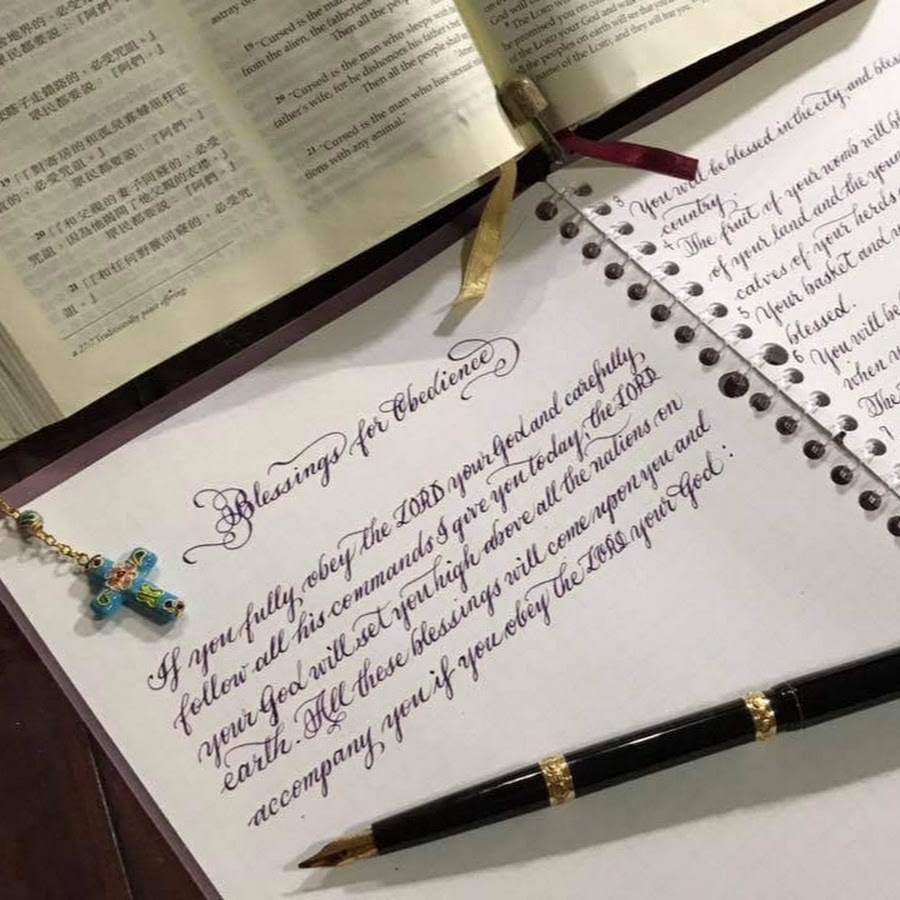 地界的，必受咒
民都要說：『阿們。』
瞎子走錯路的，必受咒詛。』
眾民都要說：『阿們。』
19 「『對寄居的和孤兒寡婦屈枉正
的，必受咒詛。』
眾民都要說：『阿們。』
20 「『和父親的妻子同寢的，必受
咒詛，因為他揭開了他父親的衣襟。』
眾民都要說：『阿們。』
21 「『和任何野獸同寢的，必受咒
詛。』
a 27:7 Traditionally peace offering;
astray on
19 "Cursed is the man
from the alien, the fatherless
Then all the people
20 "Cursed is the man who sleeps
father's wife, for he dishonors his father's
Then all the people shall
21 "Cursed is the man who has sexual
tions with any animal."
God will
9 The LORD
he promised you on
of the LORD your God and walk
all the peoples on earth will see that you
name of the LORD, and they will fear you.
Blessings for Obedience
If you fully obey the LORD your God and carefully
follow all his commands I give you today, the LORD
your God will set you high above all the nations on
earth. All these blessings will come upon you and
accompany you if you obey the LORD your God:
3 You will be blessed in the city and
country.
4 The fruit of your womb will
of your land and the
calves of your herds
5 Your basket and
blessed.
6 You will be
when
7 The